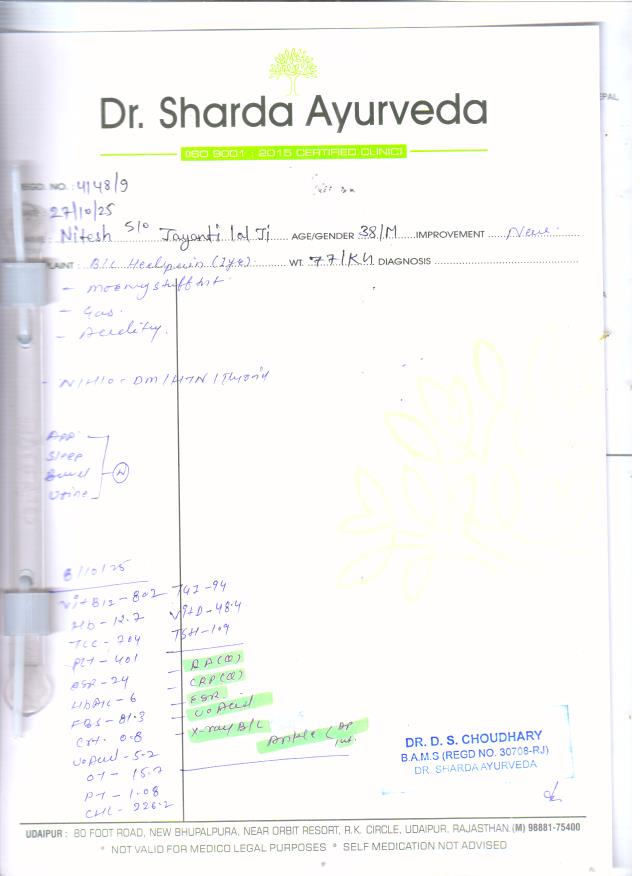 Dr. Sharda Ayurveda
(ISO 9001 : 2015 CERTIFIED CLINIC)
EGD. NO. : 4148/9
27/10/25
Nitesh S/o Jayanti lal Ji AGE/GENDER 38/M IMPROVEMENT New
PLAINT : B/L Heelpain (2yr) WT. 77/KG DIAGNOSIS
- Morning stiffness
- Gas.
- Acidity.
- N/H/O - DM/HTN/Thyroid
App.
Sleep
Bowel
Urine
N
8/10/25
Vit B12 - 802 TGI - 94
Hb - 12.7 Vit D - 48.4
TLC - 704 TSH - 1.09
PLT - 401
ESR - 24
HbA1C - 6
FBS - 81.3
Crt. 0.8
U. Acid - 5.2
OT - 15.7
PT - 1.08
CHL - 226.2
- RA(Q)
- CRP(Q)
- ESR
- U. Acid
- X-ray B/L
Ankle (AP
Lat.
DR. D. S. CHOUDHARY
B.A.M.S (REGD NO. 30708-RJ)
DR. SHARDA AYURVEDA
UDAIPUR : 80 FOOT ROAD, NEW BHUPALPURA, NEAR ORBIT RESORT, R.K. CIRCLE, UDAIPUR, RAJASTHAN.(M) 98881-75400
* NOT VALID FOR MEDICO LEGAL PURPOSES * SELF MEDICATION NOT ADVISED